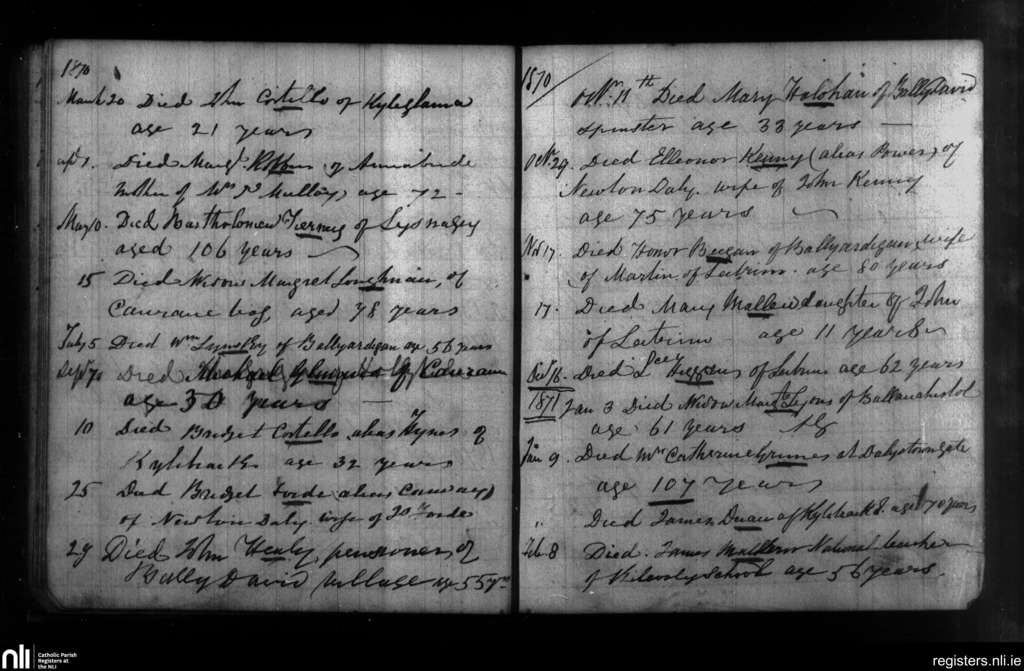 1870
March 20 Died John Costello of Kyleglama
age 21 years
Died Margt of Annabride
Mother of Wm Mulling age 72 -
May 10. Died Bartholomew Tierney of Lysnagry
aged 106 years
15 Died Widow Margret Loughnan, of
Caurane bog, aged 78 years
July 5 Died Wm Lynskey of Ballyardigan age 56 years
Sept 7 Died Michael of
age 30 years
10 Died Bridget Costello alias Hynes of
age 32 years
25 Died Bridget Forde (alias Conway)
of Newton Daly wife of Jo Forde
29 Died John Healy, pensioner, of
Bally David village age 55 yrs
1870
Oct. 11th Died Mary Holohan of Bally David
Spinster age 33 years
Oct. 29. Died Elleonor Kenny (alias Power) of
Newton Daly. wife of John Kenny
age 75 years
Nov 17. Died Honor Regan of Ballyardigan wife
of Martin of Latrim. age 80 years
17. Died Mary Mallew daughter of John
of Latrim age 11 years
16. Died Higgins of Latrim age 62 years
1871 Jan 3 Died Widow Margt Lyons of
age 61 years
Jan 9. Died Mrs Catherine Grimes at Dalystown gate
age 107 years
" Died James of aged 70 years
Feb. 8 Died. James National teacher
of School age 56 years.
nli
Catholic Parish
Registers at
the NLI
registers.nli.ie